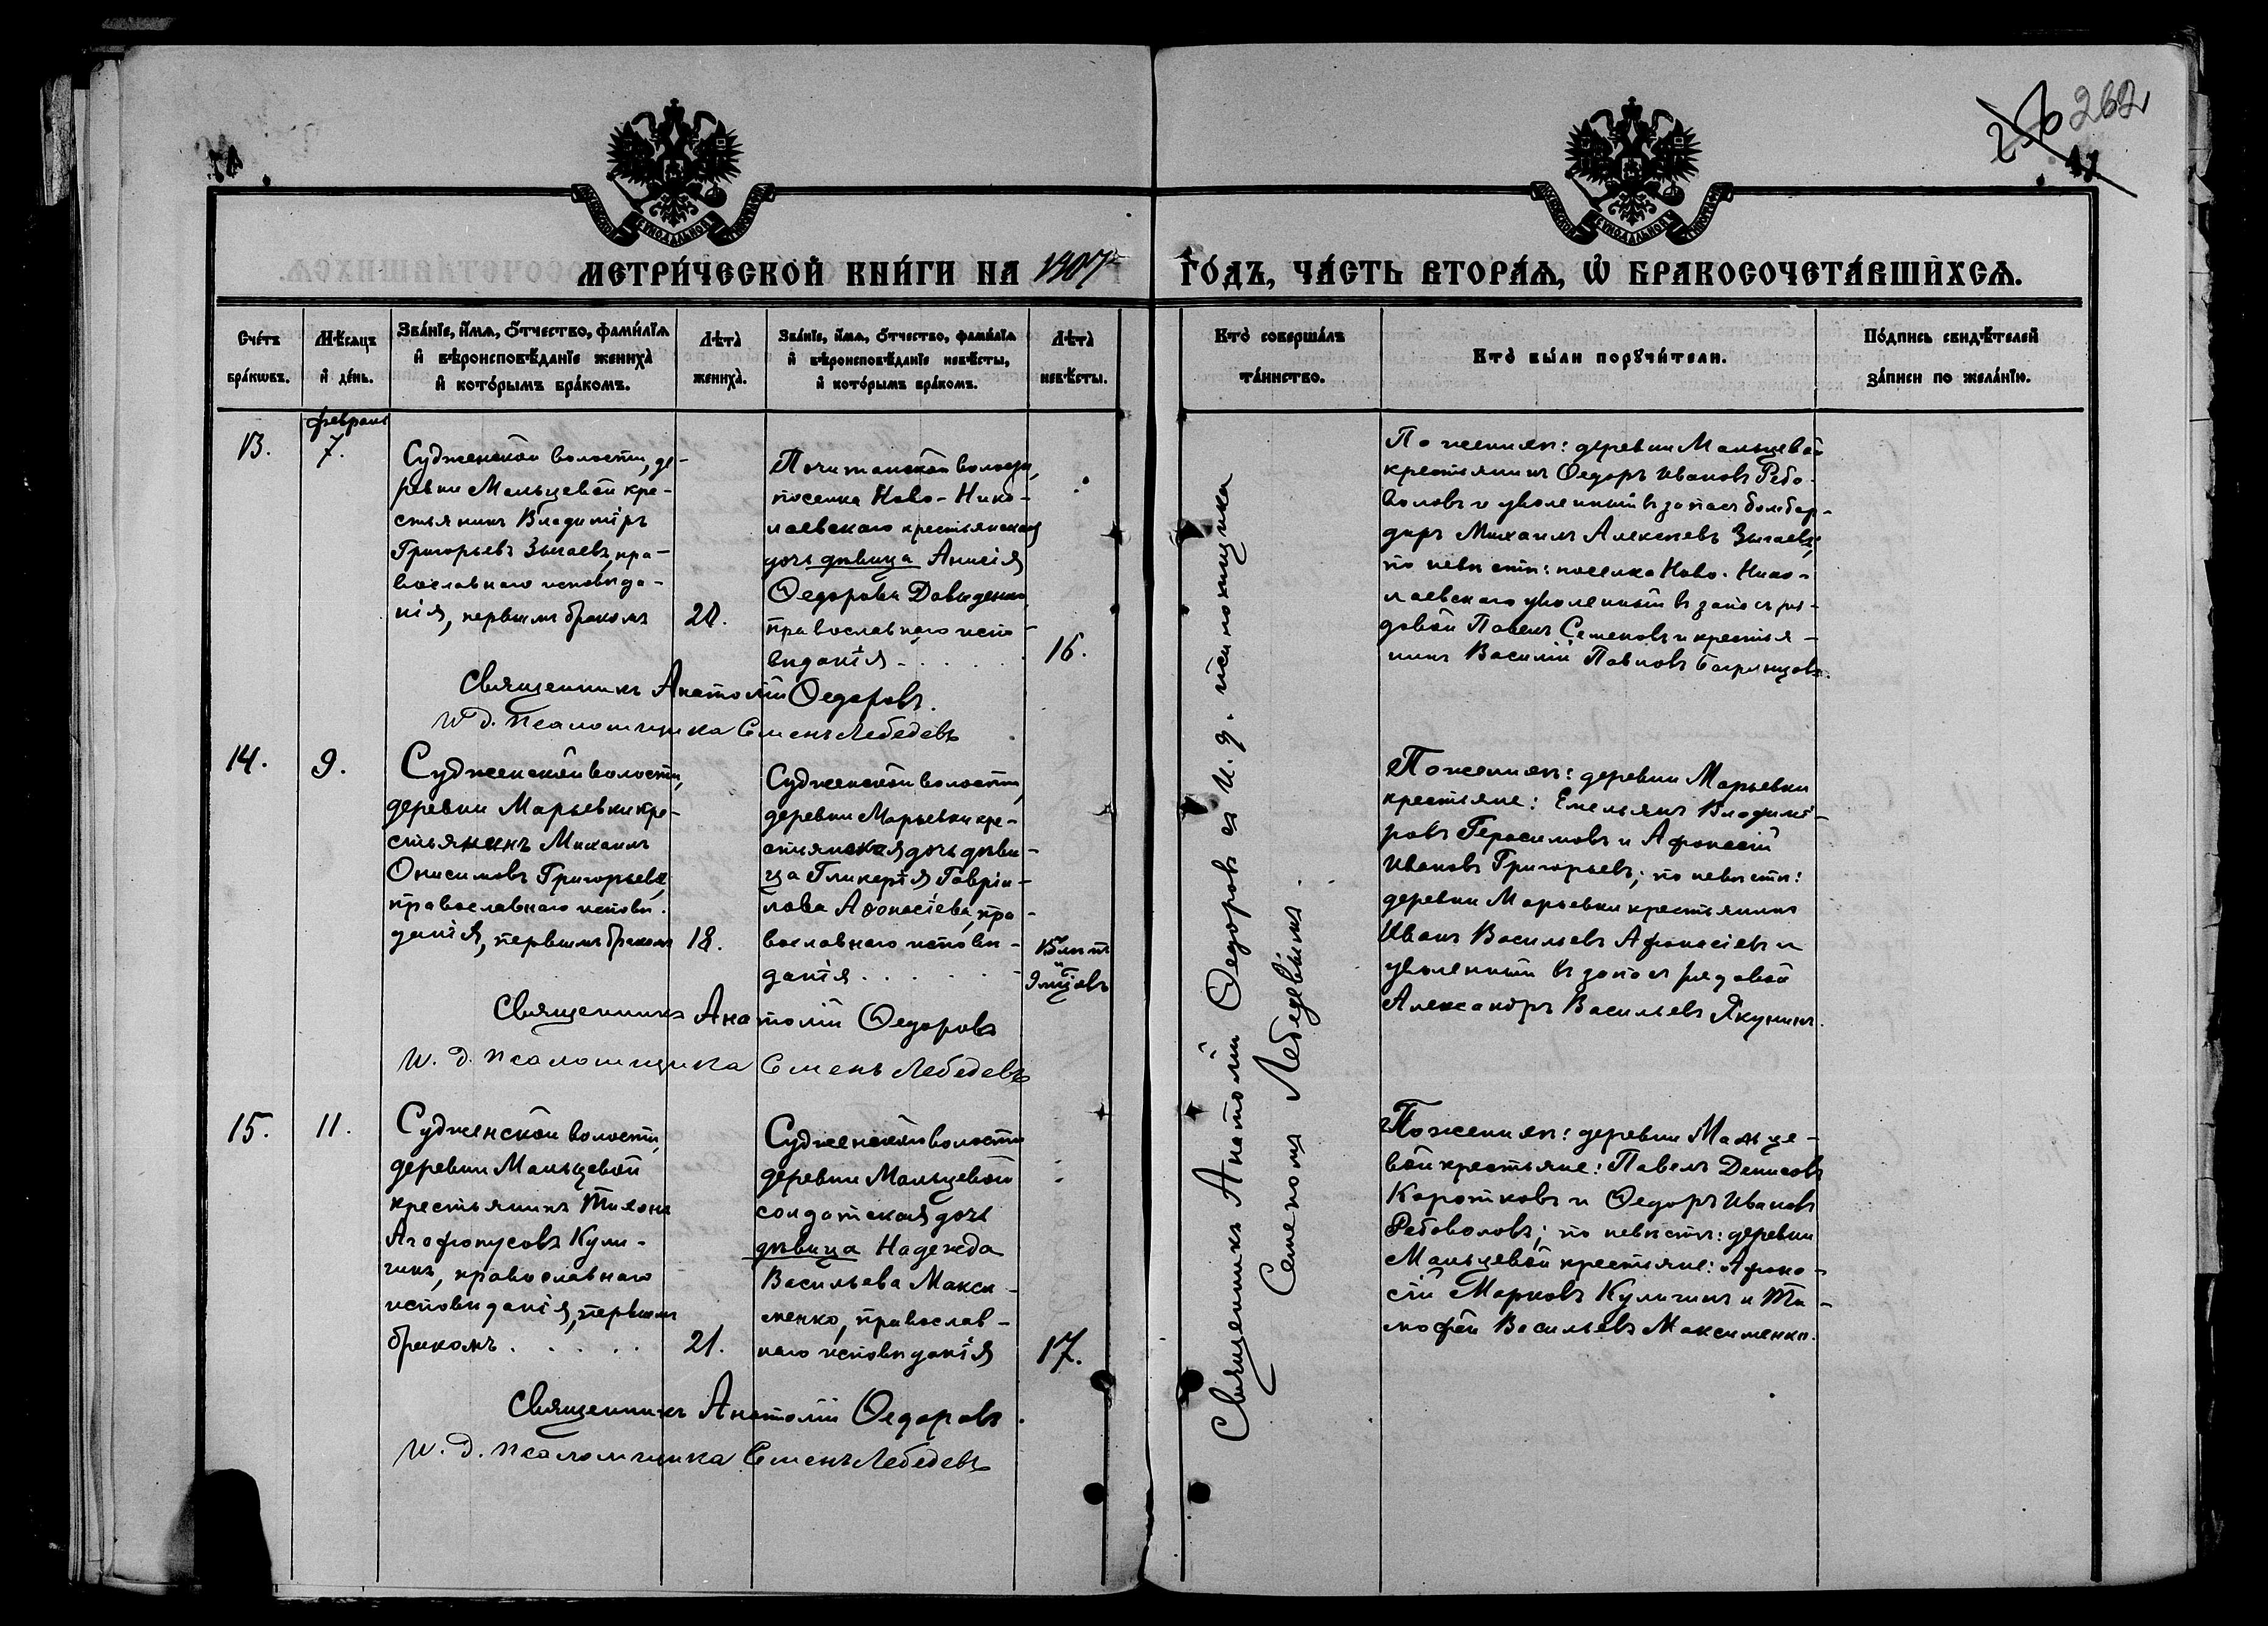 262
МЕТРИ́ЧЕСКОЙ КНИ́ГИ НА 1907 ГО́ДЪ, ЧА́СТЬ ВТОРА́Ѧ, Ѡ҆ БРАКОСОЧЕТА́ВШИХСѦ.
Сче́тъ
бра́кѡвъ.
Мѣ́сѧцъ
и҆ де́нь.
Зва́нїе, и҆́мѧ, ѻ҆́тчество, фами́лїѧ
и҆ вѣроисповѣ́данїе жениха̀
и҆ кото́рымъ бра́комъ.
Лѣ́та
жениха̀.
Зва́нїе, и҆́мѧ, ѻ҆́тчество, фами́лїѧ
и҆ вѣроисповѣ́данїе невѣ́сты,
и҆ кото́рымъ бра́комъ.
Лѣ́та
невѣ́сты.
Кто̀ соверша́лъ
та́инство.
Кто̀ бы́ли порꙋчи́тели.
По́дпись свидѣ́телей
за́писи по жела́нїю.
13.
февраля
7.
Судженской волости, де-
ревни Мальцевой кре-
стьянинъ Владиміръ
Григорьевъ Зыгаевъ, пра-
вославнаго исповѣда-
нія, первымъ бракомъ
20.
Почитанской волости,
поселка Ново-Нико-
лаевскаго крестьянская
дочь дѣвица Анисія
Ѳедорова Давиденко,
православнаго испо-
вѣданія
16.
Священникъ Анатолій Ѳедоровъ.
И. д. псаломщика Семенъ Лебедевъ
По женихѣ: деревни Мальцевой
крестьянинъ Ѳедоръ Ивановъ Ребо-
воловъ и уволенный въ запасъ бомбар-
диръ Михаилъ Алексѣевъ Зыгаевъ;
по невѣстѣ: поселка Ново-Нико-
лаевскаго уволенный въ запасъ ря-
довой Павелъ Семеновъ и крестья-
нинъ Василій Павловъ Багрянцовъ.
14.
9.
Судженской волости,
деревни Марьевки кре-
стьянинъ Михаилъ
Онисимовъ Григорьевъ,
православнаго исповѣ-
данія, первымъ бракомъ
18.
Судженской волости,
деревни Марьевки кре-
стьянская дочь дѣви-
ца Гликерія Гаврiи-
лова Афонасіева, пра-
вославнаго исповѣ-
данія
15 лѣтъ
и
9 мцовъ
Священникъ Анатолій Ѳедоровъ
И. д. псаломщика Семенъ Лебедевъ
По женихѣ: деревни Марьевки
крестьяне: Емельянъ Владимі-
ровъ Герасимовъ и Афонасій
Ивановъ Григорьевъ; по невѣстѣ:
деревни Марьевки крестьянинъ
Иванъ Васильевъ Афонасіевъ и
уволенный въ запасъ рядовой
Александръ Васильевъ Якунинъ.
15.
11.
Судженской волости,
деревни Мальцевой
крестьянинъ Тихонъ
Агафонусовъ Кули-
гинъ, православнаго
исповѣданія, первымъ
бракомъ
21.
Судженской волости
деревни Мальцевой
солдатская дочь
дѣвица Надежда
Васильева Макси-
менко, православ-
наго исповѣданія
17.
Священникъ Анатолій Ѳедоровъ.
И. д. псаломщика Семенъ Лебедевъ
По женихѣ: деревни Мальце-
вой крестьяне: Павелъ Денисовъ
Коротковъ и Ѳедоръ Ивановъ
Ребоволовъ; по невѣстѣ: деревни
Мальцевой крестьяне: Афона-
сій Марковъ Кулигинъ и Ти-
мофей Васильевъ Максименко.
Священникъ Анатолій Ѳедоровъ съ И. д. псаломщика
Семеномъ Лебедевымъ.